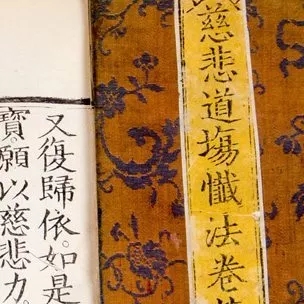 慈悲道場懺法卷
又復歸依。如是
寶。願以慈悲力。